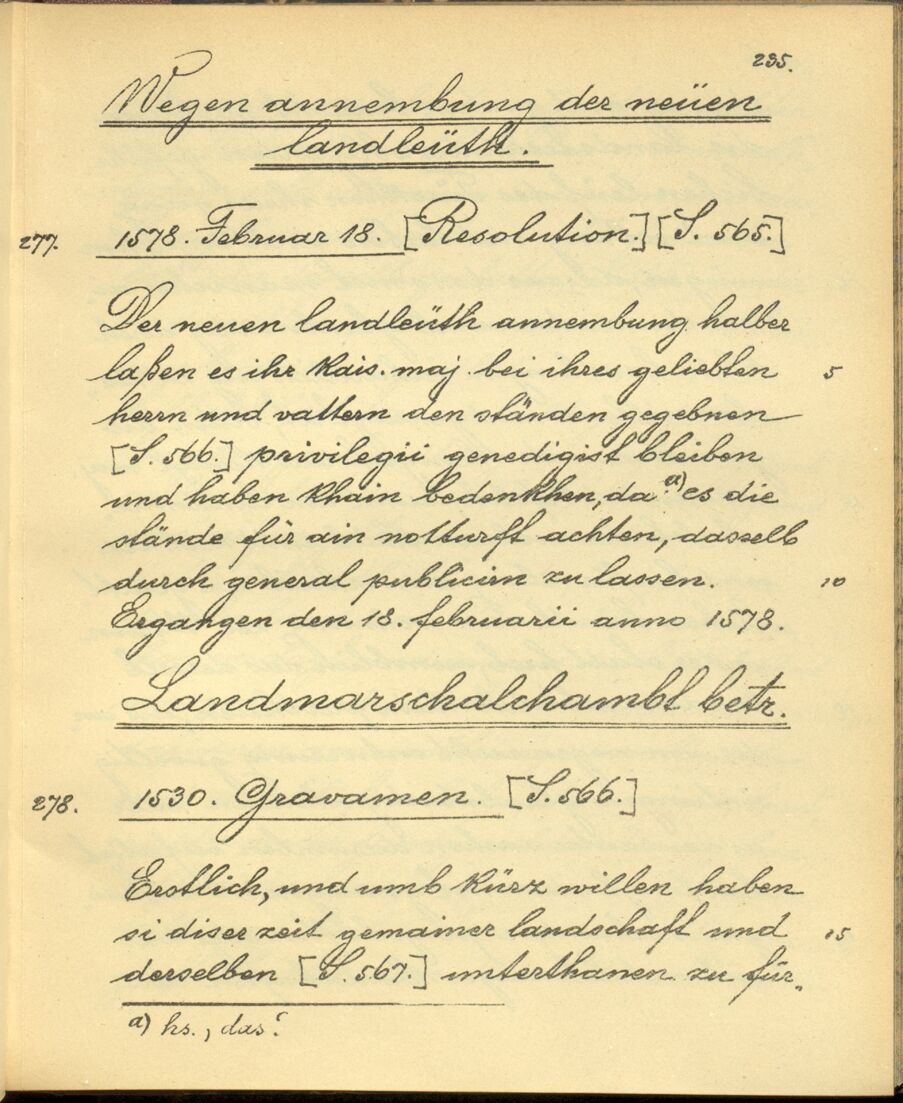 235.
Wegen annembung der neüen
landleüth.
277. 1578. Februar 18. [Resolution.] [S. 565.]
Der neuen landleüth annembung halber
laßen es ihr Kais. maj. bei ihres geliebten 5
herrn und vattern den ständen gegebnen
[S. 566.] privilegii genedigist bleiben
und haben khain bedenkhen, da a) es die
stände für ain notturft achten, dasselb
durch general publicirn zu lassen. 10
Ergangen den 18. februarii anno 1578.
Landmarschalchambt betr.
278. 1530. Gravamen. [S. 566.]
Erstlich, und umb kürz willen haben
si diser zeit gemainer landschaft und 15
derselben [S. 567.] unterthanen zu für„
a) hs., das‘